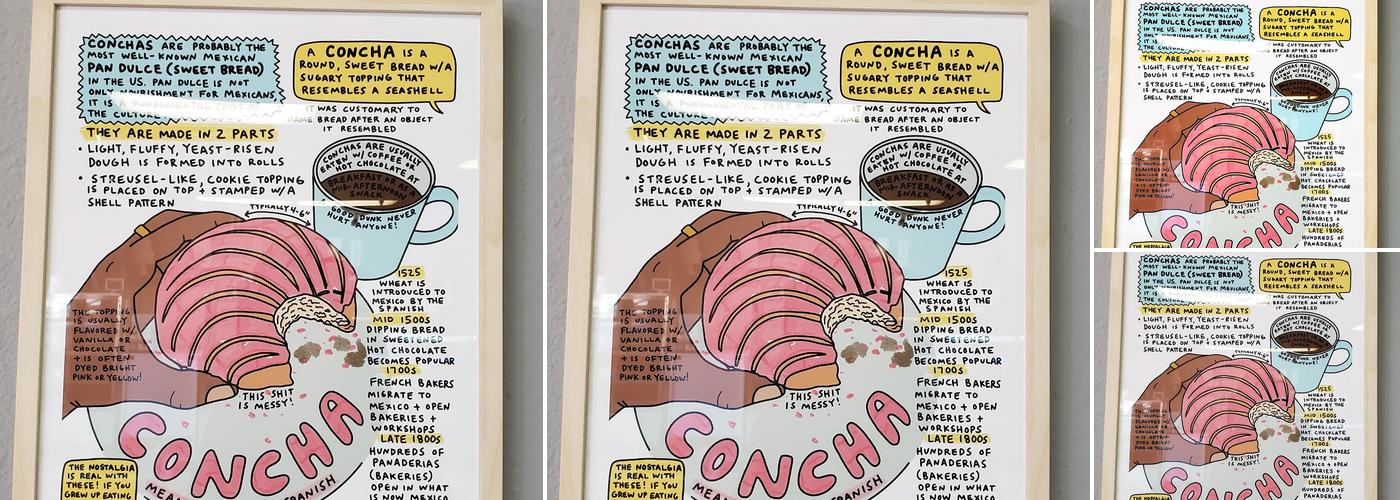 CONCHAS ARE PROBABLY THE
MOST WELL-KNOWN MEXICAN
PAN DULCE (SWEET BREAD)
IN THE US. PAN DULCE IS NOT
ONLY NOURISHMENT FOR MEXICANS,
IT IS A FUNDAMENTAL PART OF
THE CULTURE.
A CONCHA IS A
ROUND, SWEET BREAD W/A
SUGARY TOPPING THAT
RESEMBLES A SEASHELL
IT WAS CUSTOMARY TO
NAME BREAD AFTER AN OBJECT
IT RESEMBLED
THEY ARE MADE IN 2 PARTS
• LIGHT, FLUFFY, YEAST-RISEN
DOUGH IS FORMED INTO ROLLS
• STREUSEL-LIKE, COOKIE TOPPING
IS PLACED ON TOP + STAMPED W/A
SHELL PATTERN
CONCHAS ARE USUALLY
EATEN W/ COFFEE OR
HOT CHOCOLATE AT
BREAKFAST OR AS A
MID-AFTERNOON
SNACK
GOOD DUNK NEVER
HURT ANYONE!
TYPICALLY 4-6"
THE TOPPING
IS USUALLY
FLAVORED W/
VANILLA OR
CHOCOLATE
+ IS OFTEN
DYED BRIGHT
PINK OR YELLOW!
1525
WHEAT IS
INTRODUCED TO
MEXICO BY THE
SPANISH
MID 1500S
DIPPING BREAD
IN SWEETENED
HOT CHOCOLATE
BECOMES POPULAR
1700S
FRENCH BAKERS
MIGRATE TO
MEXICO + OPEN
BAKERIES +
WORKSHOPS
LATE 1800S
HUNDREDS OF
PANADERIAS
(BAKERIES)
OPEN IN WHAT
IS NOW MEXICO
THIS SHIT
IS MESSY!
CONCHA
SPANISH
THE NOSTALGIA
IS REAL WITH
THESE! IF YOU
GREW UP EATING